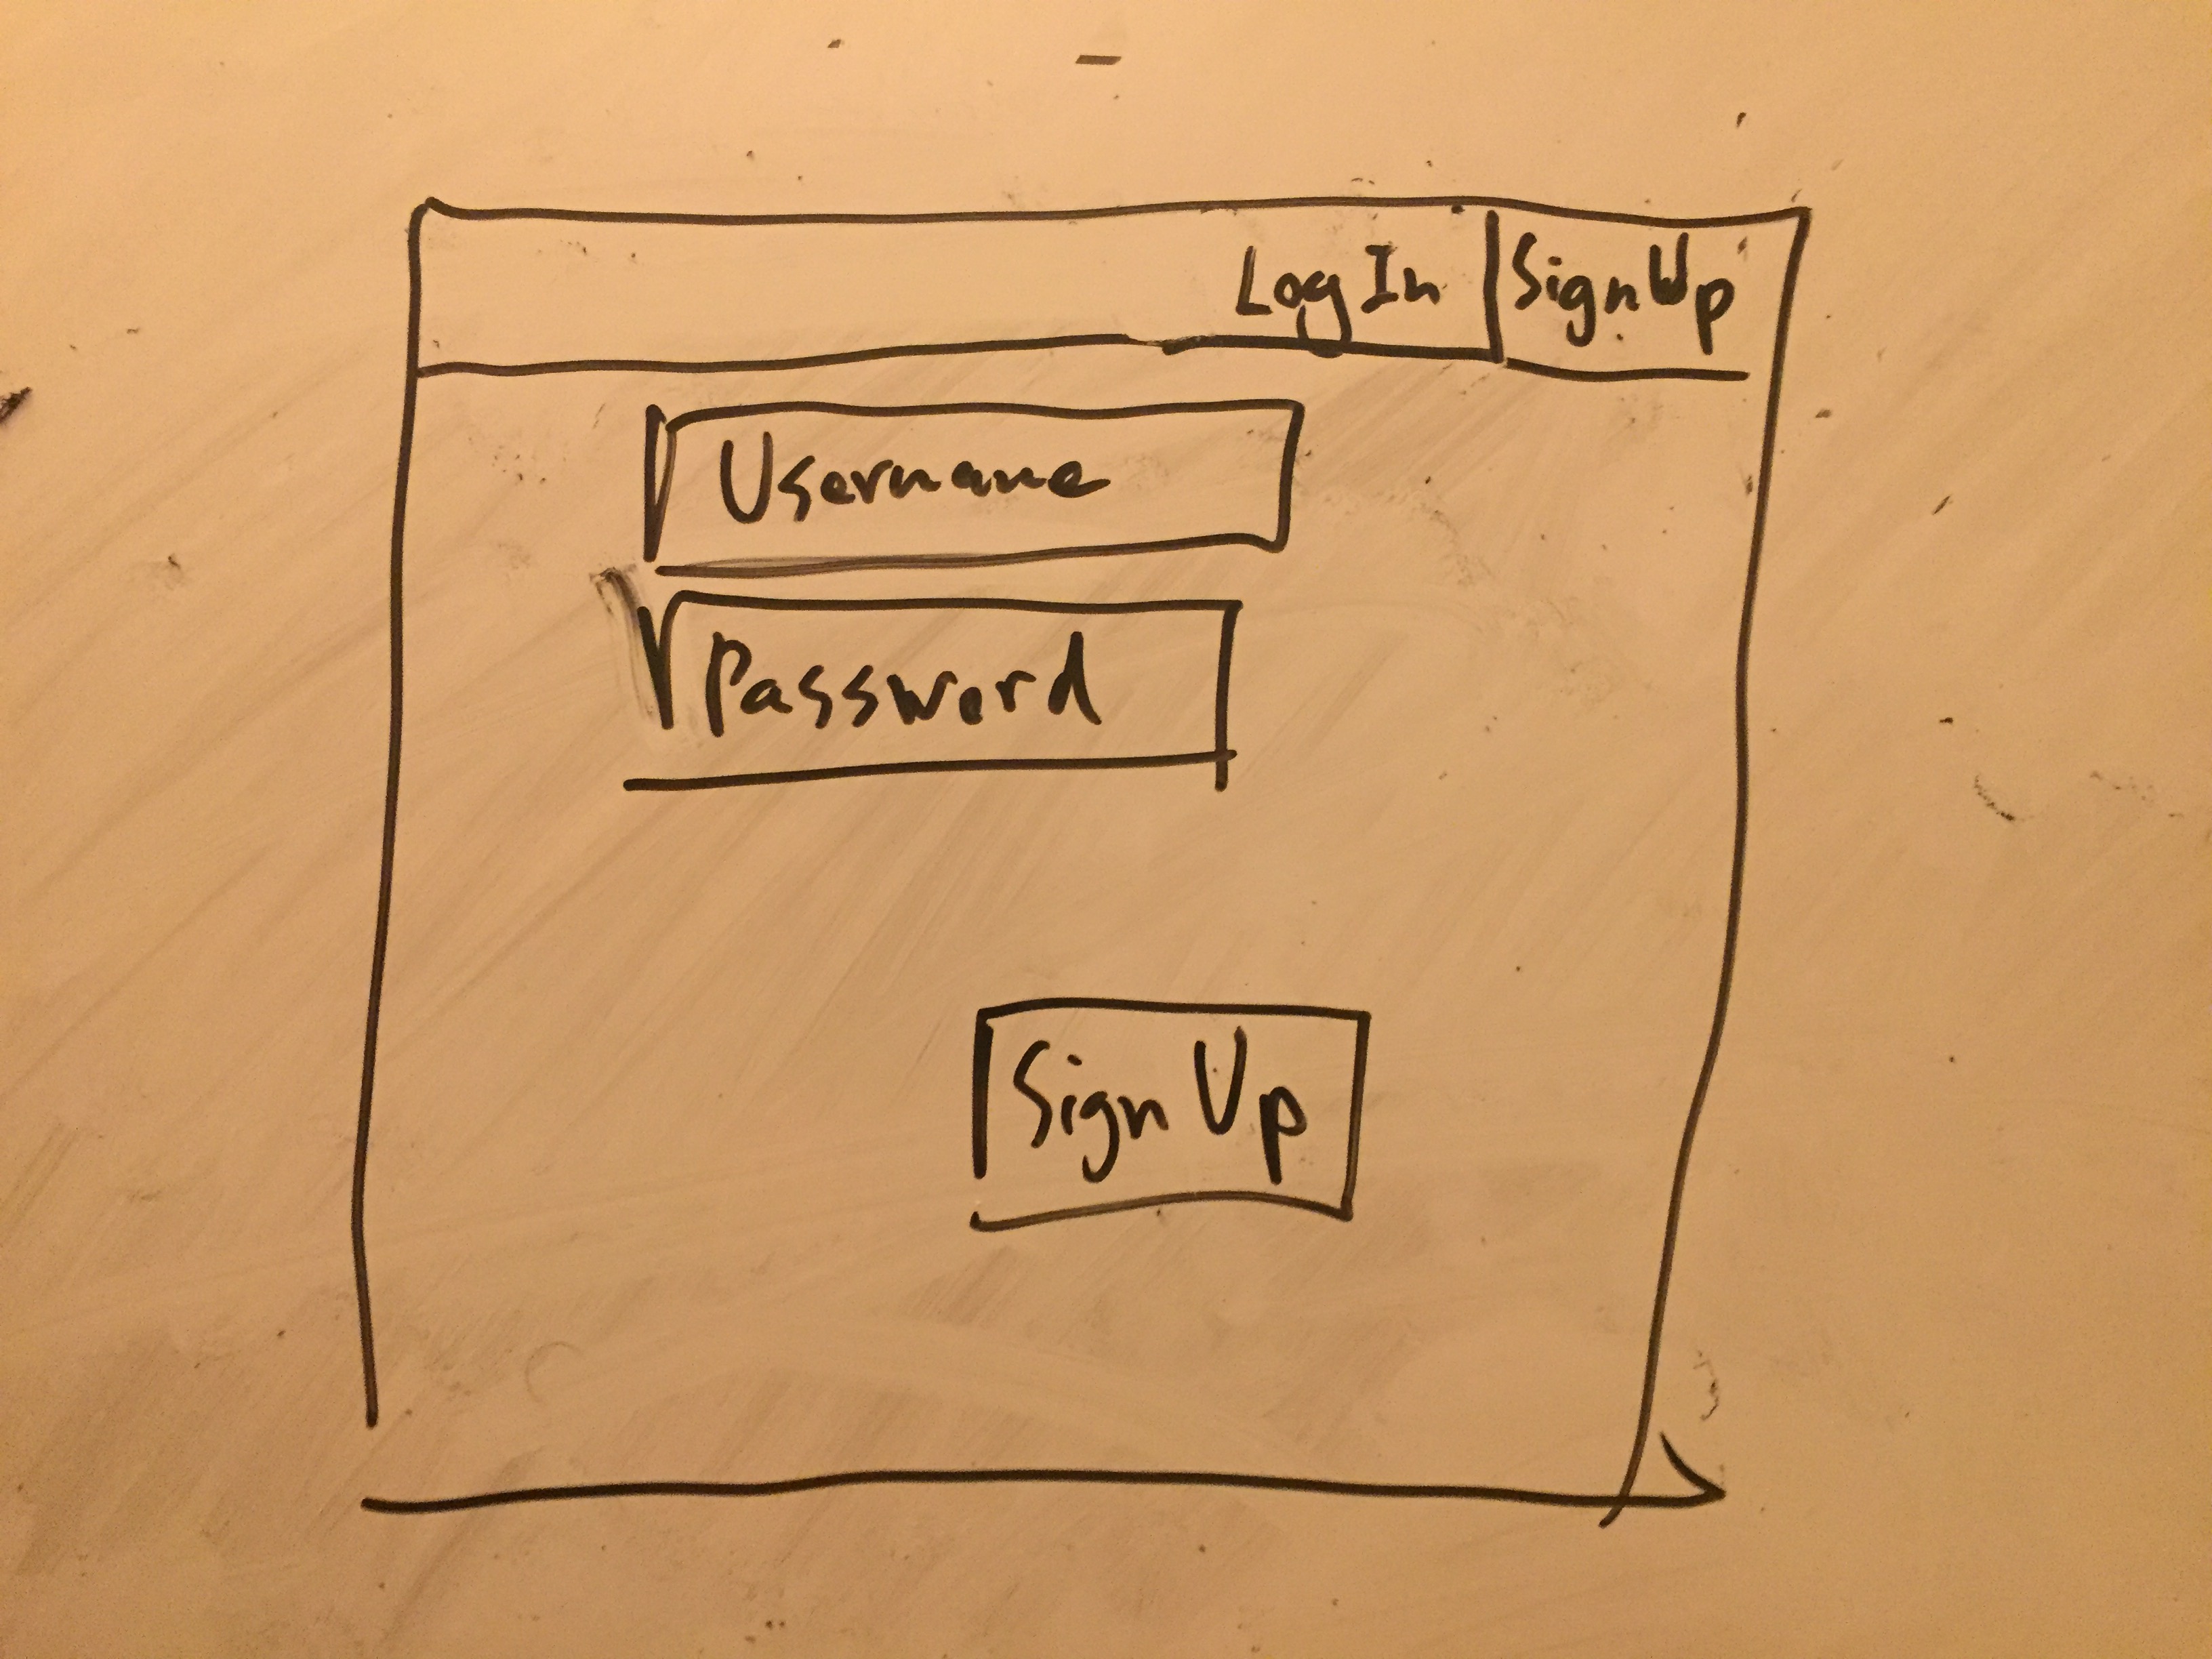 Log In Sign Up
Username
Password
Sign Up